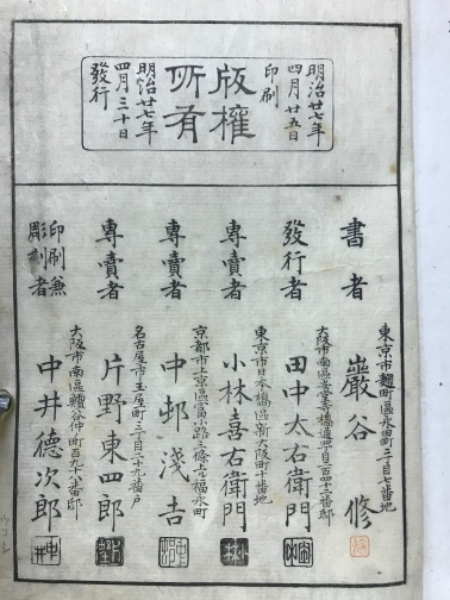 明治廿七年
四月廿五日
印刷
版權
所有
明治廿七年
四月三十日
發行
書者
東京市麴町區永田町二丁目七番地
巖谷修
發行者
大阪市南區安堂寺橋通四丁目二百四十二番邸
田中太右衛門
專賣者
東京市日本橋區新大阪町十番地
小林喜右衛門
專賣者
京都市上京區富小路三條上ル福永町
中邨淺吉
專賣者
名古屋市玉屋町三丁目二十九番戸
片野東四郎
印刷兼
彫刻者
大阪市南區鰻谷仲町百九十八番邸
中井德次郎